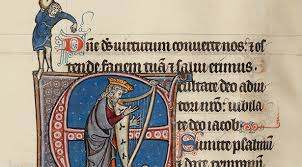 Dn̄e ds̄ uirtutum conuerte nos: ⁊ os
ten de faciem tuā ⁊ salui erimus
Exultate deo adiu
tori nr̄o: iubila
te deo iacob.
Sumite psalmū